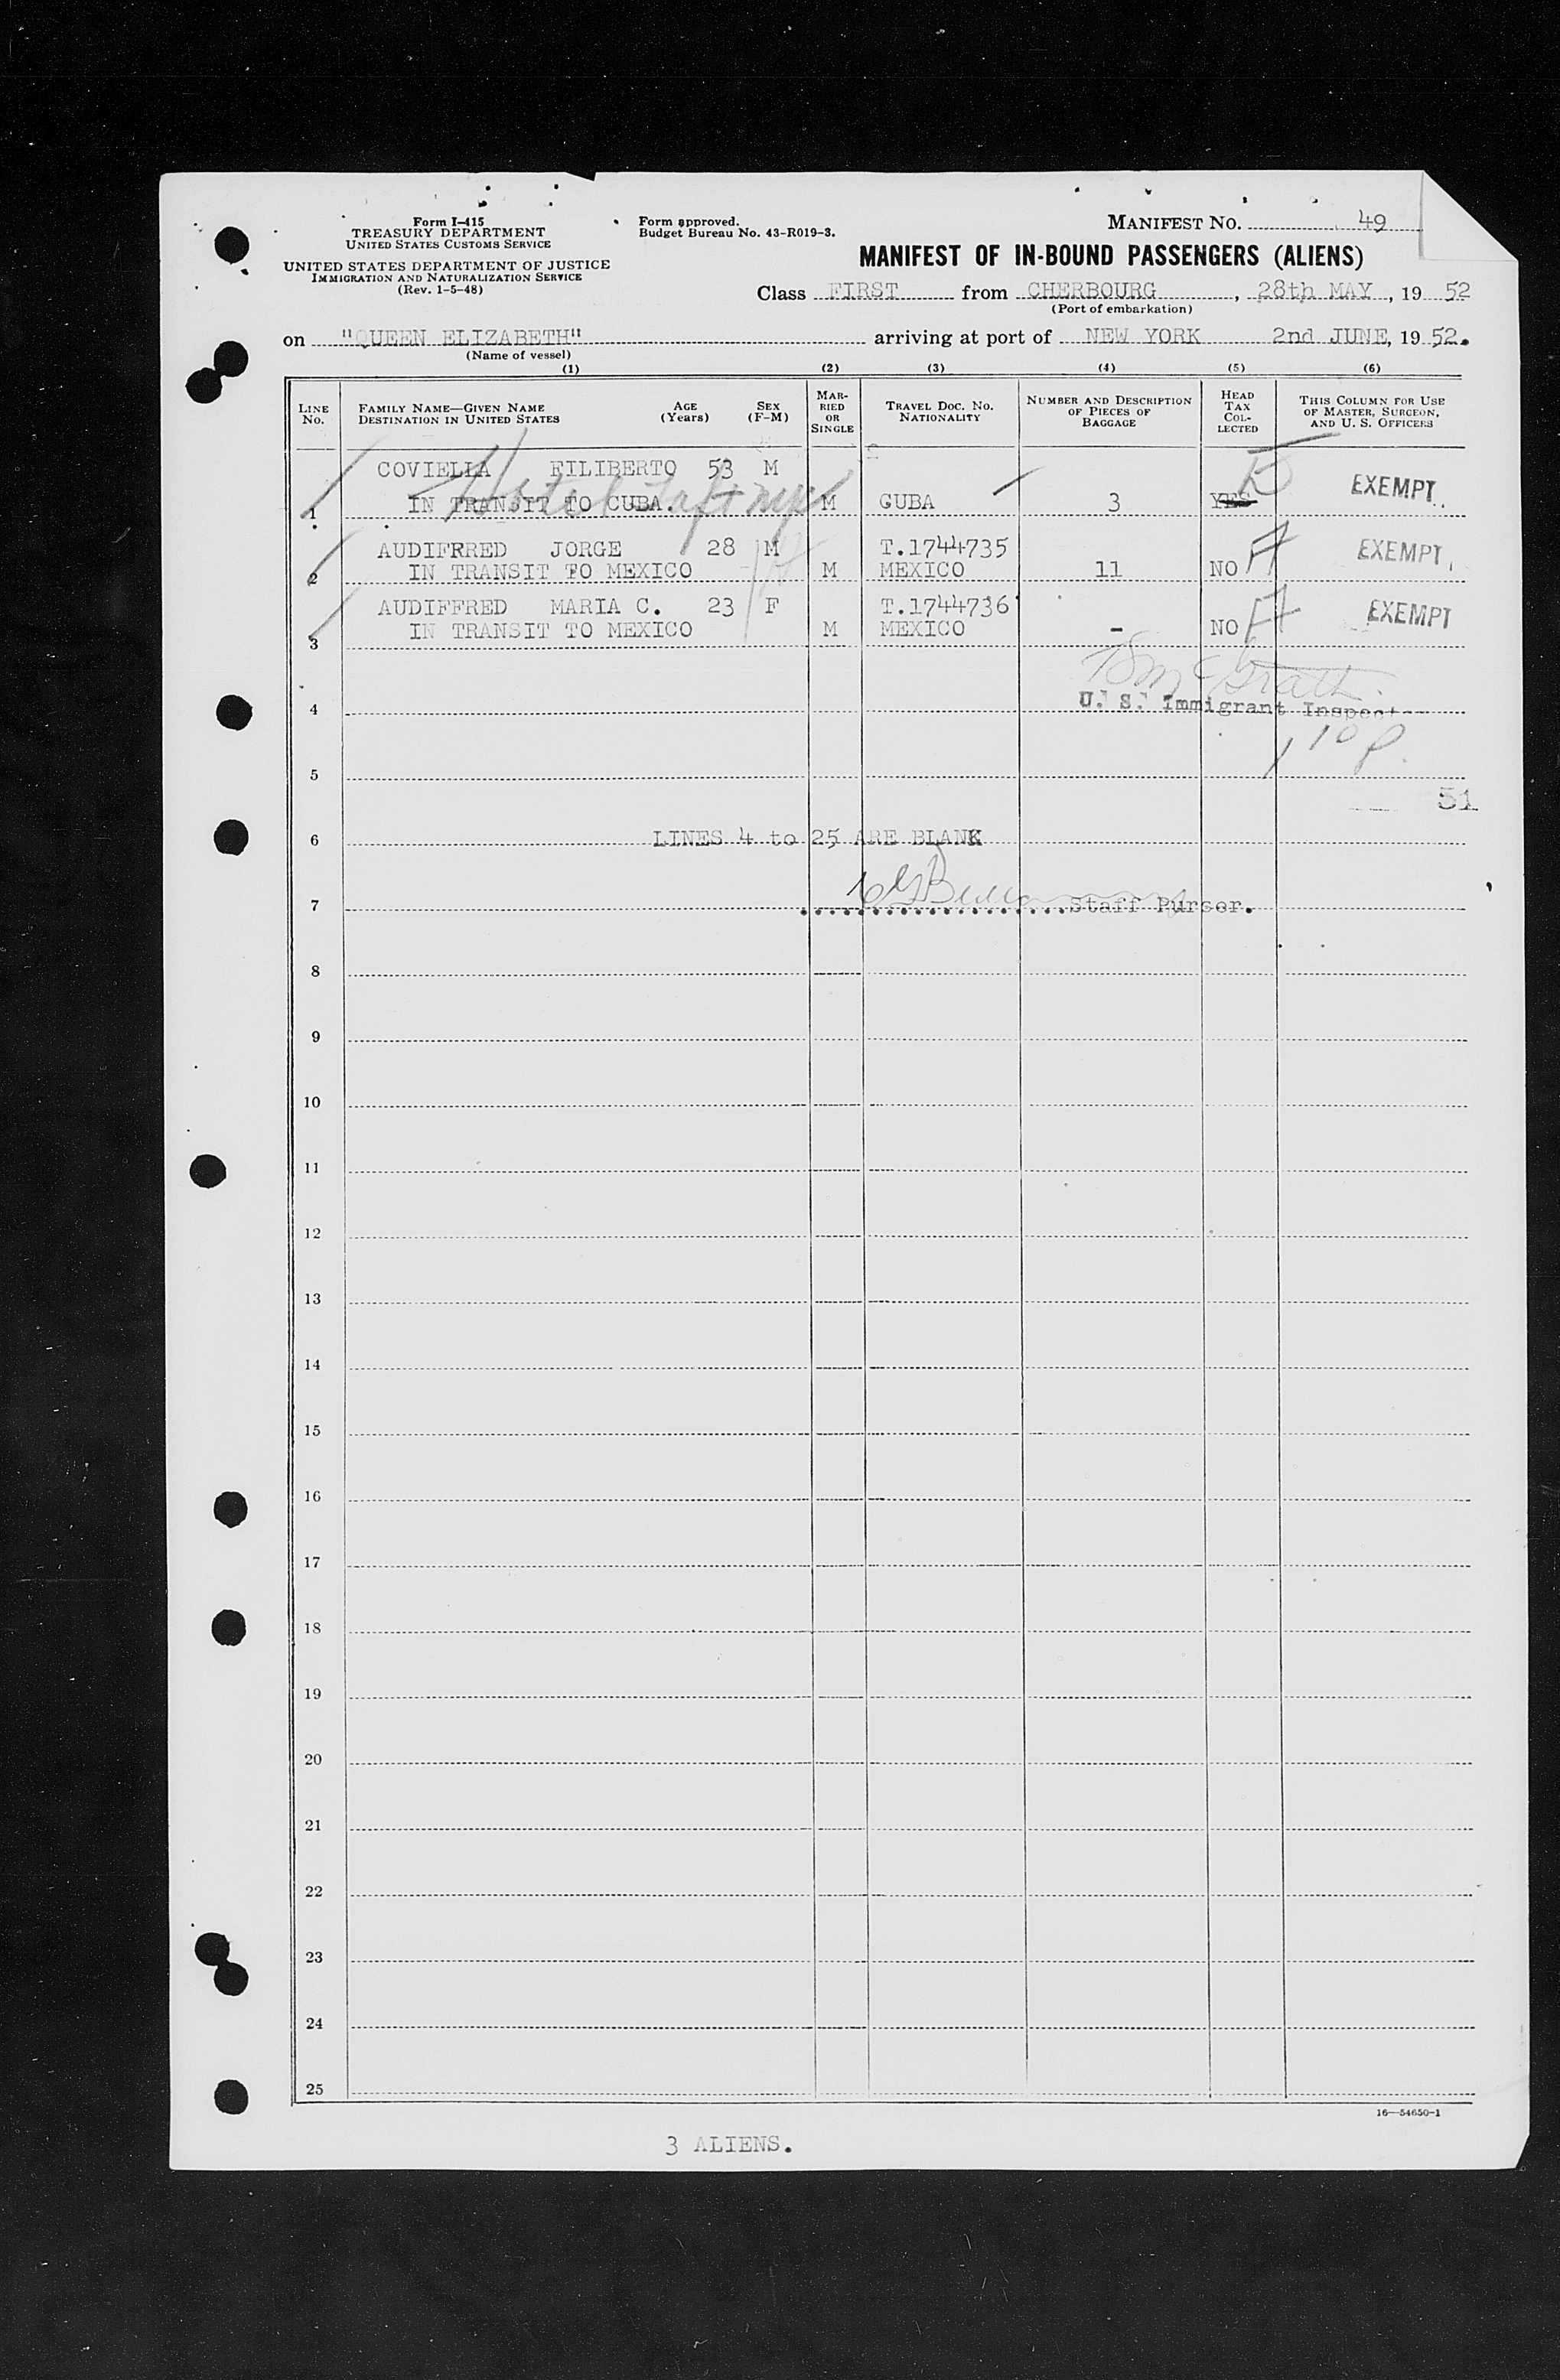 Form I-415
TREASURY DEPARTMENT
UNITED STATES CUSTOMS SERVICE
UNITED STATES DEPARTMENT OF JUSTICE
IMMIGRATION AND NATURALIZATION SERVICE
(Rev. 1-5-48)
Form approved.
Budget Bureau No. 43-R019-3.
MANIFEST NO. 49
MANIFEST OF IN-BOUND PASSENGERS (ALIENS)
Class FIRST from CHERBOURG, 28th MAY, 19 52
(Port of embarkation)
on "QUEEN ELIZABETH" arriving at port of NEW YORK 2nd JUNE, 19 52.
(Name of vessel)
(1) (2) (3) (4) (5) (6)
LINE NO. FAMILY NAME—GIVEN NAME DESTINATION IN UNITED STATES AGE (Years) SEX (F-M) MARRIED OR SINGLE TRAVEL DOC. NO. NATIONALITY NUMBER AND DESCRIPTION OF PIECES OF BAGGAGE HEAD TAX COLLECTED THIS COLUMN FOR USE OF MASTER, SURGEON, AND U. S. OFFICERS
COVIELLA FILIBERTO 53 M
Hotel Taft nyc
1 IN TRANSIT TO CUBA. M CUBA 3 YES EXEMPT.
AUDIFRRED JORGE 28 M T.1744735
2 IN TRANSIT TO MEXICO M MEXICO 11 NO EXEMPT.
AUDIFFRED MARIA C. 23 F T.1744736
3 IN TRANSIT TO MEXICO M MEXICO - NO EXEMPT
McGrath
4 U. S. Immigrant Inspect
110 P.
5
51
6 LINES 4 to 25 ARE BLANK
7 Staff Purser.
8
9
10
11
12
13
14
15
16
17
18
19
20
21
22
23
24
25
16—54650-1
3 ALIENS.